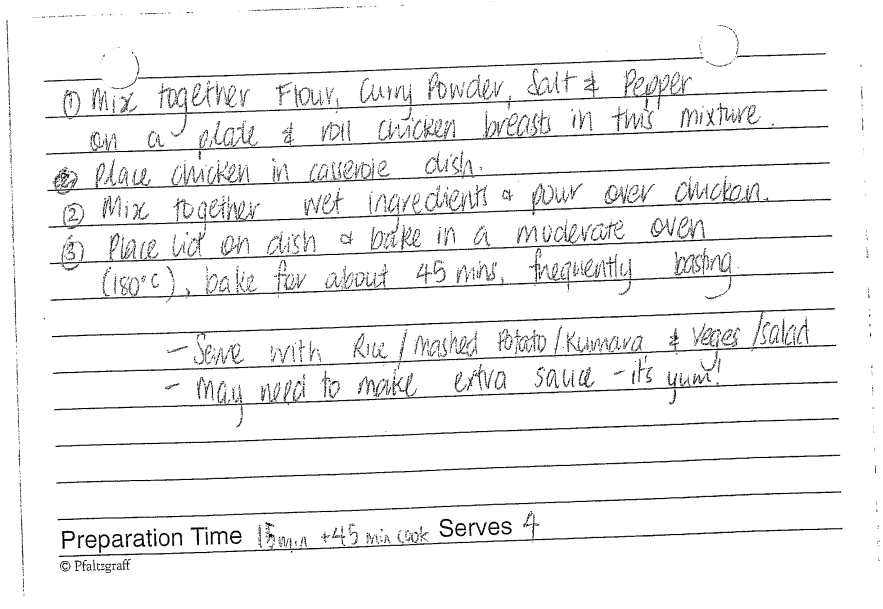 ① Mix together Flour, Curry Powder, Salt & Pepper
on a plate & roll chicken breasts in this mixture.
Place chicken in casserole dish.
② Mix together wet ingredients & pour over chicken.
③ Place lid on dish & bake in a moderate oven
(180°C), bake for about 45 mins, frequently basting.
- Serve with Rice / Mashed Potato / Kumara & Veges / salad
- May need to make extra sauce - it's yum!
Preparation Time 15 min + 45 min cook Serves 4
© Pfaltzgraff